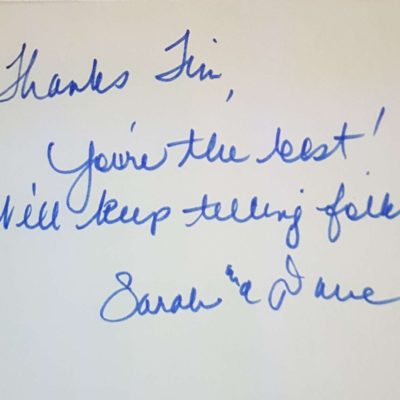 Thanks Tim,
You're the best!
We'll keep telling folk
Sarah & Dave